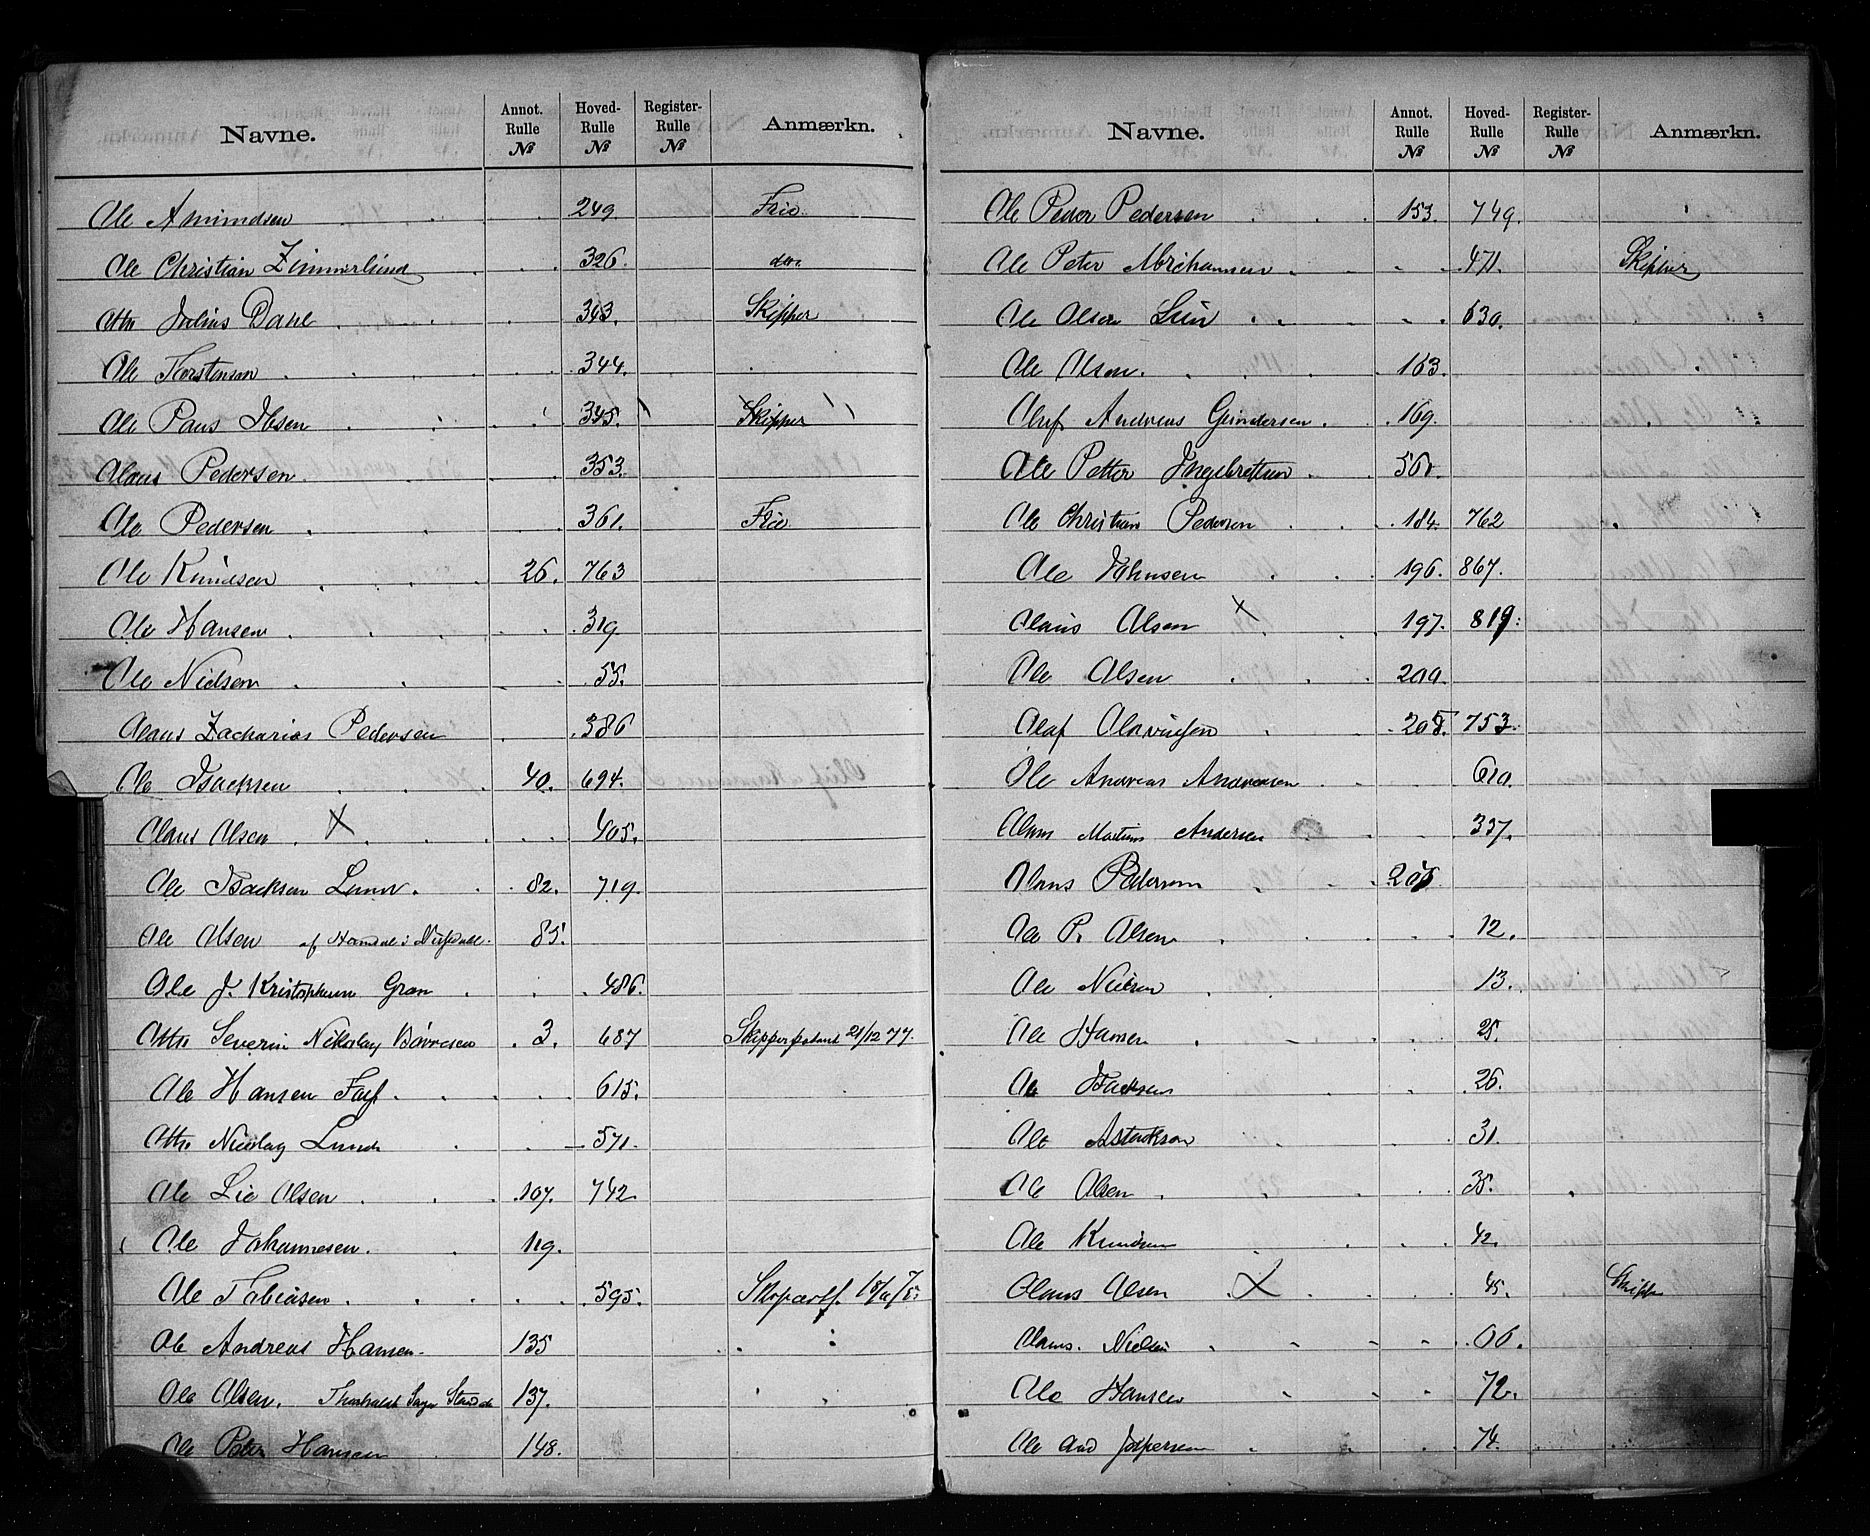 Navne. Annot. Rulle № Hoved- Rulle № Register- Rulle № Anmærkn.
Ole Amundsen 249. Frie.
Ole Christian Zimmerlund 326. do.
Otto Julius Dahl 343. Skipper
Ole Torstensen 344.
Ole Paus Ibsen 345. Skipper
Olaus Pedersen 353.
Ole Pedersen 361. Frie
Ole Knudsen 26. 763
Ole Hansen 319.
Ole Nielsen 55.
Olaus Zacharias Pedersen 386
Ole Isacksen 40. 694.
Olaus Olsen X 405.
Ole Isacksen Lund 82. 719.
Ole Olsen af 85.
Ole J. Kristophersen Gron 486.
Otto Severin Nikolay Børresen 3. 687 21/12 77.
Ole Hansen 615.
Otto Nicolay Lund 571.
Ole Lie Olsen 107. 742.
Ole Johannesen. 119.
Ole Tobiasen 595.
Ole Andreas Hansen 135
Ole Olsen. 137.
Ole Peter Hansen 148.
Navne. Annot. Rulle № Hoved- Rulle № Register- Rulle № Anmærkn.
Ole Peder Pedersen 153. 749.
Ole Peter 471. Skipper
Ole Olsen 630.
Ole Olsen. 163.
Oluf Andreas Gundersen 169.
Ole Petter Ingebretsen 560.
Ole Christian Pedersen 184. 762
Ole Johnsen 196. 867.
Olaus Olsen X 197. 819.
Ole Olsen 200.
Olaf 753.
Ole Andreas Andreasen 610.
Olaus Martin Andersen 337.
Olaus Pedersen
Ole P. Olsen 12.
Ole Nielsen 13.
Ole Hansen 25.
Ole Isacksen 26.
Ole 31.
Ole Olsen 35.
Ole Knudsen 42.
Olaus Olsen X 45.
Olaus. Nielsen 66.
Ole Hansen 72.
Ole And Jespersen 74.